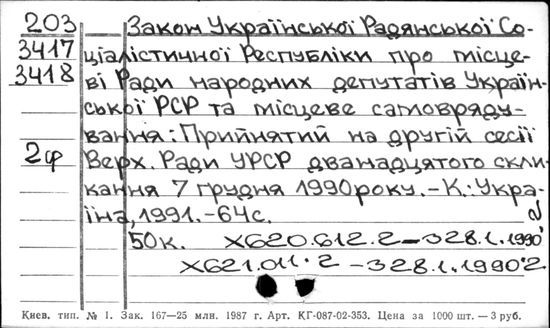 203 Закон Української Радянської Со-
3417 ціалістичної Республіки про місце-
3418 ві Ради народних депутатів Україн-
ської РСР та місцеве самовряду-
вання: Прийнятий на другій сесії
2ф Верх. Ради УРСР дванадцятого скли-
кання 7 грудня 1990 року. - К.: Укра-
їна, 1991. - 64 с.
50к. Х620.612.2 - 328.1.1990
Х621.011.2 - 328.1.1990'2
Киев. тип. № 1. Зак. 167—25 млн. 1987 г. Арт. КГ-087-02-353. Цена за 1000 шт. — 3 руб.